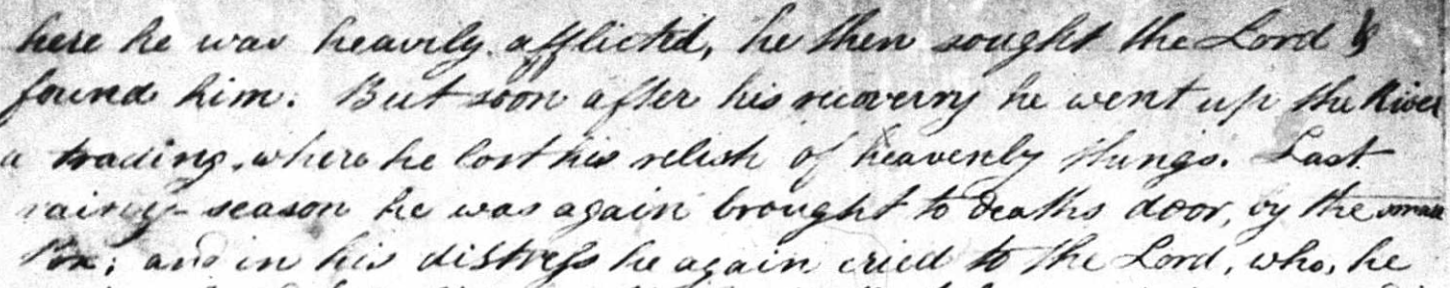 here he was heavily afflicted, he then sought the Lord &
found him. But soon after his recoverry he went up the River
a trading, where he lost his relish of heavenly things. Last
rainy-season he was again brought to deaths door, by the small
Pox; and in his distress he again cried to the Lord, who, he